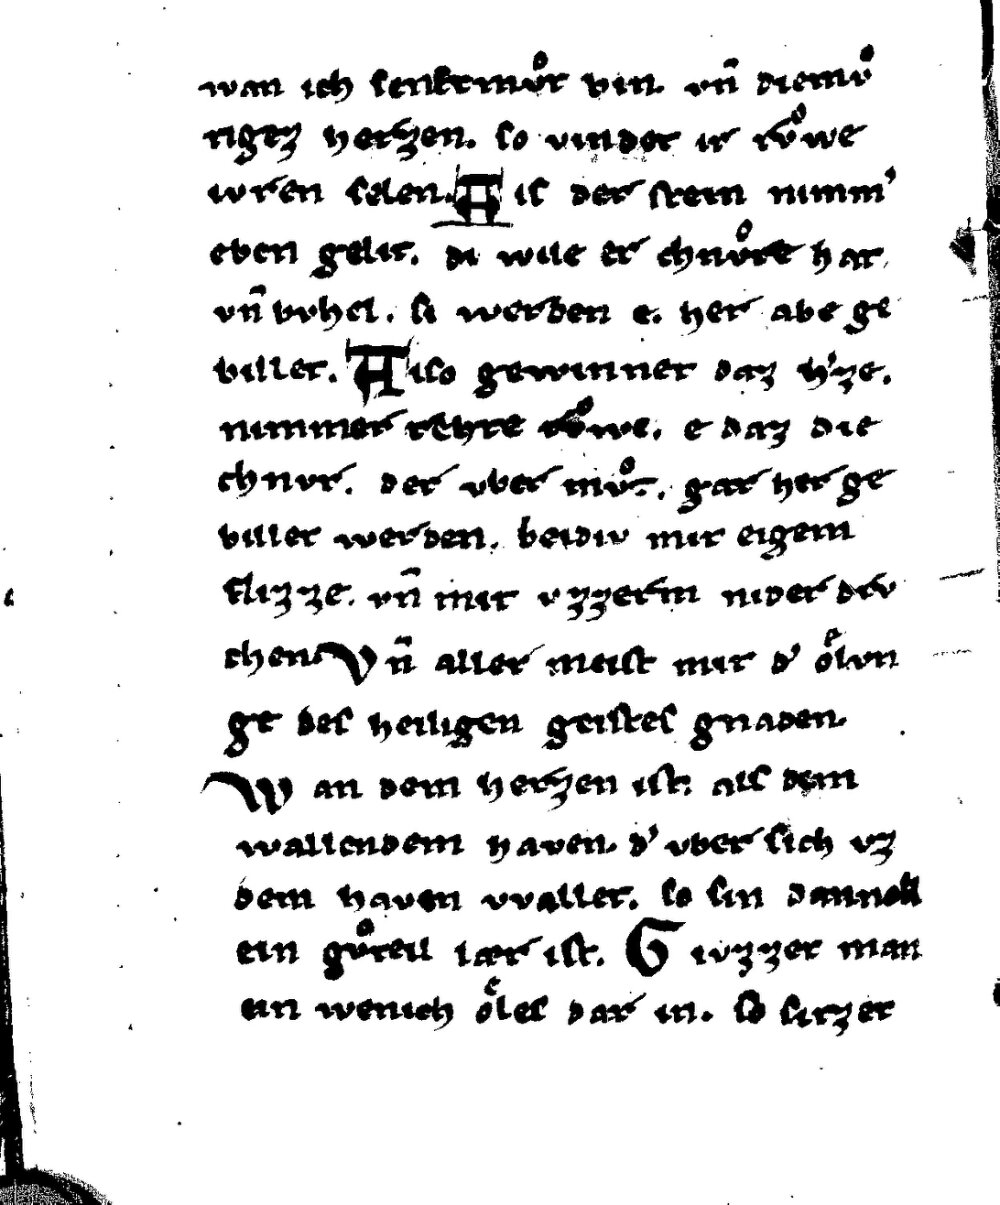 wan ich senftmuͦt bin. vn̄ diemuͦ
tigez herzen. so vindet ir ruͦwe
iwren selen. Als der stein nimm᾽
eben gelit. di wile er chnuͦre hat
vn̄ buhel. si werden e. her abe ge
billet. Also gewinnet daz h᾽ze.
nimmer rehte ruͦwe. e daz die
chnur. der uber muͦt. gar her ge
billet werden. beidiv mit eigem
flizze. vn̄ mit uzzerm nider driv
chen. Vn̄ aller meist mit d᾽ oͤlun
ge des heiligen geistes gnaden.
Wan dem herzen ist. als dem
wallendem haven. d᾽ uber sich uz
dem haven wallet. so sin dannoh
ein guͦteil lær ist. Giuzzet man
ein wenich oͤles dar in. so sitzet